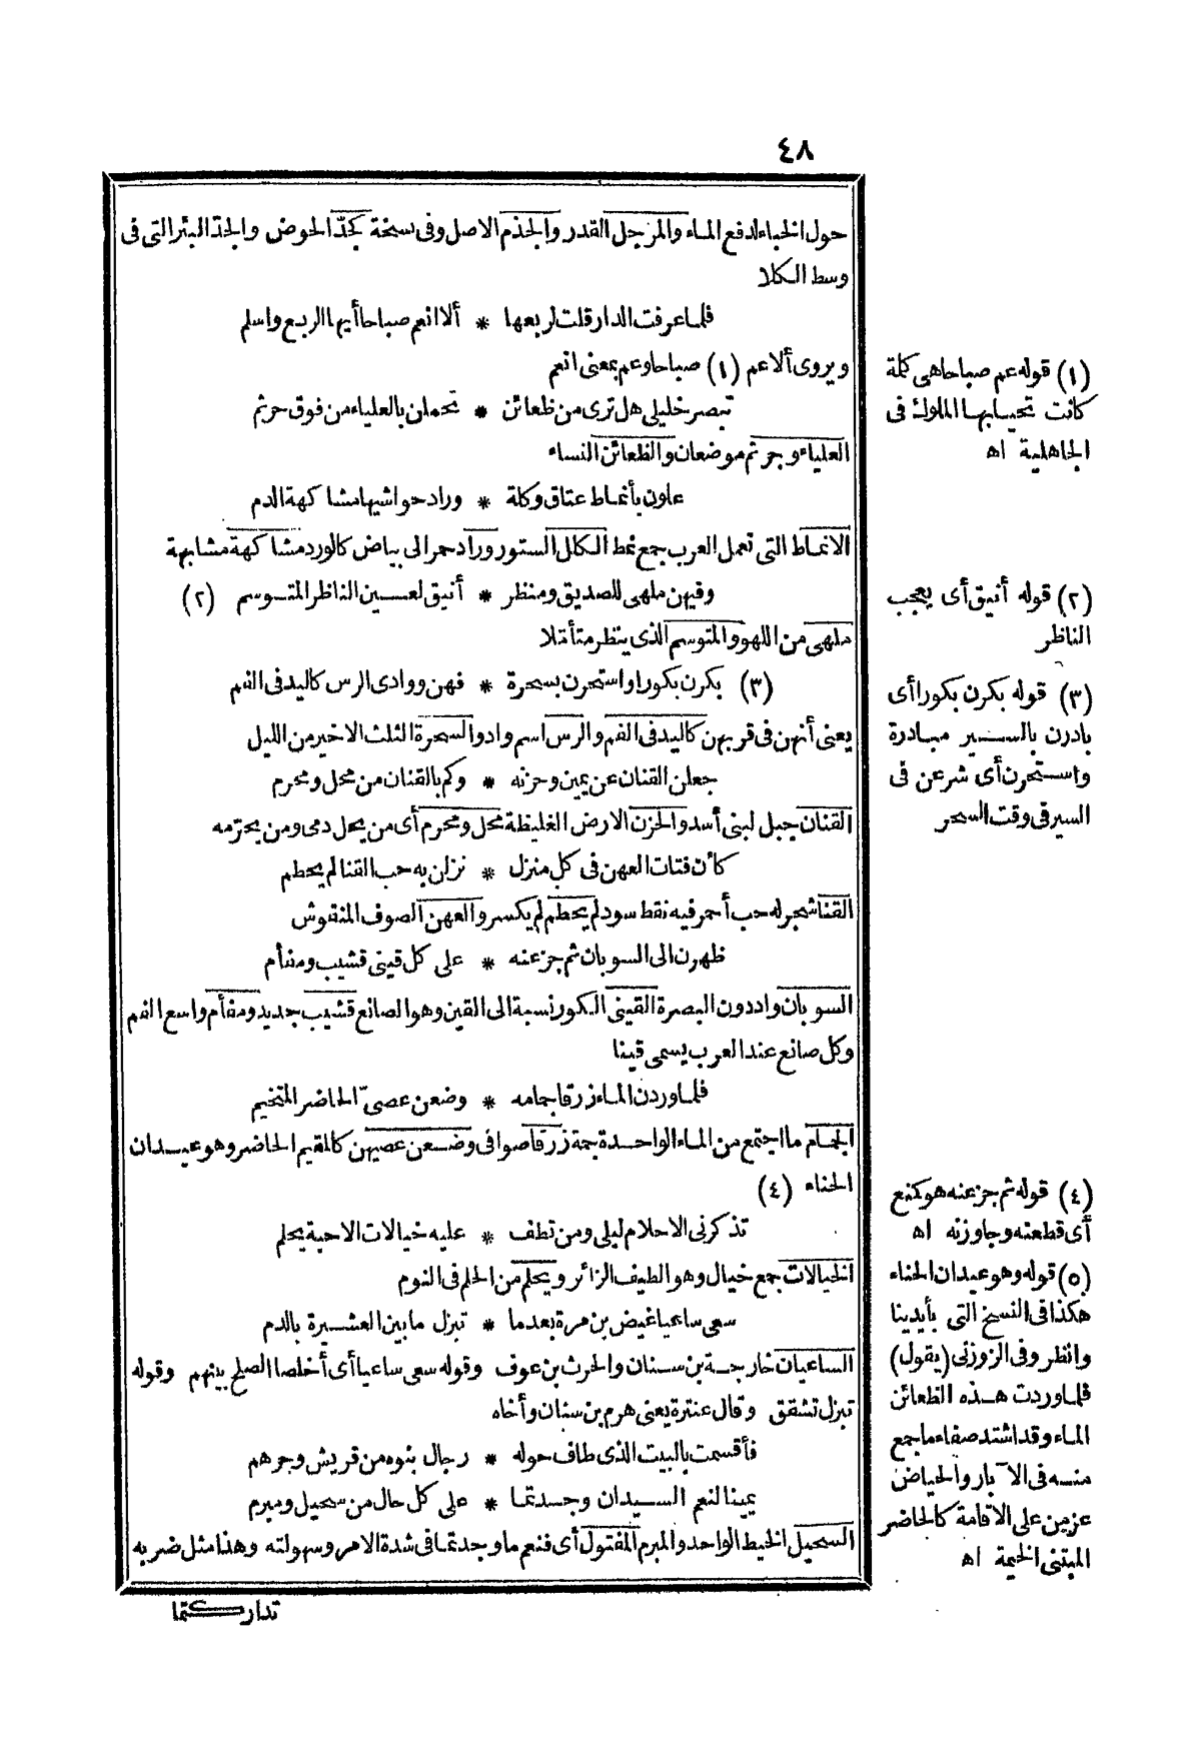 ٤٨
حول الخباء لدفع الماء والمرجل القدر والجذم الاصل وفى نسخة كجدّ الحوض والجدّ البئر التى فى
وسط الكلا
فلما عرفت الدار قلت لربعها * ألا انعم صباحا أيها الربع واسلم
ويروى ألا عم (١) صباحا وعم بمعنى انعم
تبصر خليلى هل ترى من ظعائن * تحملن بالعلياء من فوق جرثم
العلياء وجرثم موضعان والظعائن النساء
علون بأنماط عتاق وكلة * وراد حواشيها مشاكهة الدم
الانماط التى تعمل العرب جمع نمط الكلل الستور وراد حمر الى بياض كالورد مشاكهة مشابهة
وفيهن ملهى للصديق ومنظر * أنيق لعسين الناظر المتوسم (٢)
ملهى من اللهو والمتوسم الذى ينظر متأملا
(٣) بكرن بكورا واستحرن بسحرة * فهن ووادى الرس كاليد فى الفم
يعنى أنهن فى قربهن كاليد فى الفم والرس اسم واد والسحرة الثلث الاخير من الليل
جعلن القنان عن يمين وحزنه * وكم بالقنان من محل ومحرم
القنان جبل لبنى أسد والحزن الارض الغليظة محل ومحرم أى من يحل دمى ومن يحرمه
كأن فتات العهن فى كل منزل * نزلن به حب القنا لم يحطم
القنا شجر له حب أحمر فيه نقط سود لم يحطم لم يكسر والعهن الصوف المنقوش
ظهرن الى السوبان ثم جزعنه * على كل قينى قشيب ومفأم
السوبان واد دون البصرة القينى الكور نسبة الى القين وهو الصانع قشيب جديد ومفأم واسع الفم
وكل صانع عند العرب يسمى قينا
فلما وردن الماء زرقا جمامه * وضعن عصىّ الحاضر المتخيم
الجمام ما اجتمع من الماء الواحدة جمة زرقا صوافى وضعن عصيهن كالمقيم الحاضر وهو عيدان
الحناء (٤)
تذكرنى الاحلام ليلى ومن تطف * عليه خيالات الاحبة يحلم
الخيالات جمع خيال وهو الطيف الزائر ويحلم من الحلم فى النوم
سعى ساعيا غيض بن مرة بعدما * تبزل ما بين العشيرة بالدم
الساعيان خارجة بن سنان والحرث بن عوف وقوله سعى ساعيا أى أخلصا الصلح بينهم وقوله
تبزل تشقق وقال عنترة يعنى هرم بن سنان وأخاه
فأقسمت بالبيت الذى طاف حوله * رجال بنوه من قريش وجرهم
يمينا لنعم السيدان وجدتما * على كل حال من سحيل ومبرم
السحيل الخيط الواحد والمبرم المفتول أى فنعم ما وجدتما فى شدة الامر وسهولته وهذا مثل ضربه
تداركتما
(١) قوله عم صباحا هى كلمة
كانت تحيا بها الملوك فى
الجاهلية اه
(٢) قوله أنيق أى يعجب
الناظر
(٣) قوله بكرن بكورا أى
بادرن بالسير مبادرة
واستحرن أى شرعن فى
السير فى وقت السحر
(٤) قوله ثم جزعنه هو كمنع
أى قطعنه وجاوزنه اه
(٥) قوله وهو عيدان الحناء
هكذا فى النسخ التى بأيدينا
وانظر وفى الزوزنى (يقول)
فلما وردت هذه الظعائن
الماء وقد اشتد صفاء ما جمع
منه فى الآبار والحياض
عزمن على الاقامة كالحاضر
المبتنى الخيمة اه